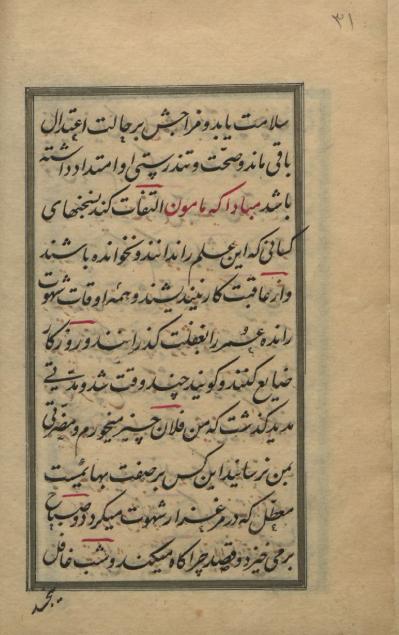 ۳۱
سلامت یابد و مزاجش بر حالت اعتدال
باقی ماند و صحّت و تندرستی او امتداد داشته
باشد مبادا که مامون التفات کند بسخنهای
کسانی که این علم را ندانند و نخوانده باشند
و از عاقبت کار نیندیشند و همه اوقات شهوت
رانده عمر را بغفلت گذرانند و روزگار
ضایع کنند و گویند چند وقت شد و مدتی
مدید گذشت که من فلان چیز میخورم و مضرتی
بمن نرسانید این کس بر صفت بهائیست
معطل که در مرغزار شهوت میگردد و صباح
برمی خیزد و قصد چراگاه میکند و شب غافل